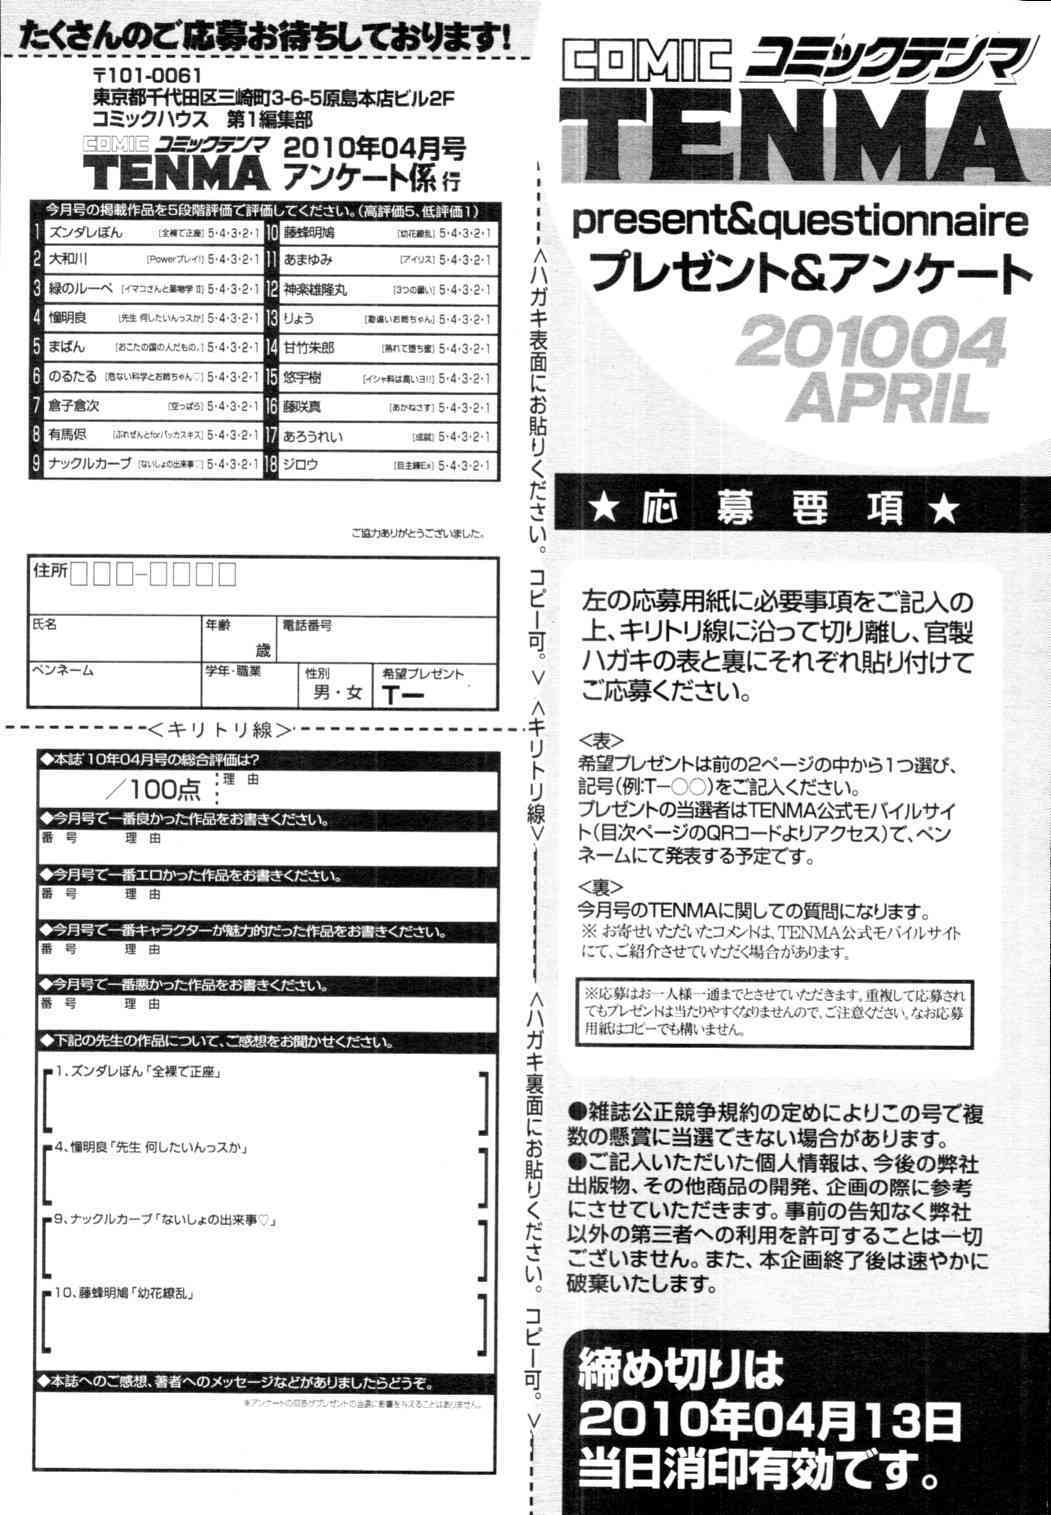 たくさんのご応募お待ちしております!
〒101-0061
東京都千代田区三崎町3-6-5原島本店ビル2F
コミックハウス 第1編集部
COMIC コミックテンマ
TENMA
2010年04月号
アンケート係 行
今月号の掲載作品を5段階評価で評価してください。(高評価5、低評価1)
1 ズンダレぽん [全裸で正座] 5・4・3・2・1
2 大和川 [Powerプレイ!] 5・4・3・2・1
3 緑のルーペ [イマコさんと薬物学 II] 5・4・3・2・1
4 憧明良 [先生 何したいんっスか] 5・4・3・2・1
5 まばん [おこたの国の人だもの。] 5・4・3・2・1
6 のるたる [危ない科学とお姉ちゃん♡] 5・4・3・2・1
7 倉子倉次 [空っぽら] 5・4・3・2・1
8 有馬侭 [ぷれぜんとforバッカスキス] 5・4・3・2・1
9 ナックルカーブ [ないしょの出来事♡] 5・4・3・2・1
10 藤蜂明鳩 [幼花繚乱] 5・4・3・2・1
11 あまゆみ [アイリス] 5・4・3・2・1
12 神楽雄隆丸 [3つの願い] 5・4・3・2・1
13 りょう [勘違いお姉ちゃん] 5・4・3・2・1
14 甘竹朱郎 [熟れて堕ち蜜] 5・4・3・2・1
15 悠宇樹 [イシャ料は高いヨ!!] 5・4・3・2・1
16 藤咲真 [あかねさす] 5・4・3・2・1
17 あろうれい [成就] 5・4・3・2・1
18 ジロウ [自主練Ex] 5・4・3・2・1
ご協力ありがとうございました。
住所□□□-□□□□
氏名
年齢
歳
電話番号
ペンネーム
学年・職業
性別
男・女
希望プレゼント
T-
<キリトリ線>
◆本誌'10年04月号の総合評価は?
/100点
理 由
◆今月号で一番良かった作品をお書きください。
番 号 理 由
◆今月号で一番エロかった作品をお書きください。
番 号 理 由
◆今月号で一番キャラクターが魅力的だった作品をお書きください。
番 号 理 由
◆今月号で一番悪かった作品をお書きください。
番 号 理 由
◆下記の先生の作品について、ご感想をお聞かせください。
1、ズンダレぽん「全裸で正座」
4、憧明良「先生 何したいんっスか」
9、ナックルカーブ「ないしょの出来事♡」
10、藤蜂明鳩「幼花繚乱」
◆本誌へのご感想、著者へのメッセージなどがありましたらどうぞ。
※アンケートの回答がプレゼントの当選に影響を与えることはありません。
<ハガキ表面にお貼りください。コピー可。>
<キリトリ線>
<ハガキ裏面にお貼りください。コピー可。>
COMIC コミックテンマ
TENMA
present&questionnaire
プレゼント&アンケート
201004
APRIL
★応募要項★
左の応募用紙に必要事項をご記入の
上、キリトリ線に沿って切り離し、官製
ハガキの表と裏にそれぞれ貼り付けて
ご応募ください。
<表>
希望プレゼントは前の2ページの中から1つ選び、
記号(例:T-○○)をご記入ください。
プレゼントの当選者はTENMA公式モバイルサイ
ト(目次ページのQRコードよりアクセス)で、ペン
ネームにて発表する予定です。
<裏>
今月号のTENMAに関しての質問になります。
※ お寄せいただいたコメントは、TENMA公式モバイルサイト
にて、ご紹介させていただく場合があります。
※応募はお一人様一通までとさせていただきます。重複して応募され
てもプレゼントは当たりやすくなりませんので、ご注意ください。なお応募
用紙はコピーでも構いません。
●雑誌公正競争規約の定めによりこの号で複
数の懸賞に当選できない場合があります。
●ご記入いただいた個人情報は、今後の弊社
出版物、その他商品の開発、企画の際に参考
にさせていただきます。事前の告知なく弊社
以外の第三者への利用を許可することは一切
ございません。また、本企画終了後は速やかに
破棄いたします。
締め切りは
2010年04月13日
当日消印有効です。